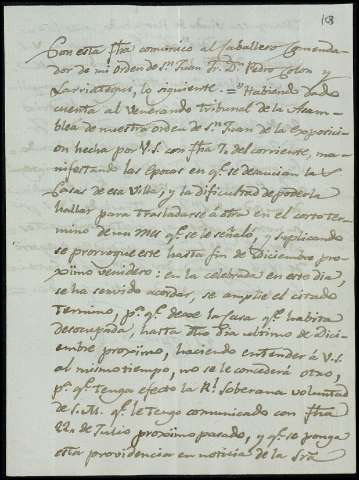 108
Con esta fha comunico al Caballero Comenda-
dor de mi orden de Sn Juan Fr. Dn Pedro Colon y
Larriategui, lo siguiente. = "Habiendo dado
cuenta al venerando Tribunal de la Asam-
blea de nuestra orden de Sn Juan de la exposicion
hecha por V.S. con fha 7. del corriente, ma-
nifestando las epocas en qe. se desaucian las
Casas de esa Villa, y la dificultad de poderla
hallar para trasladarse á otra en el corto ter-
mino de un mes qe. se le señaló, y suplicando
se prorrogue este hasta fin de Diciembre pro-
ximo venidero: en la celebrada en este dia,
se ha servido acordar, se amplie el citado
termino, pa. qe. dexe la Casa qe. habita
desocupada, hasta dho dia ultimo de Dici-
embre proximo, haciendo entender á V.S.
al mismo tiempo, no se le concederá otro,
pa. qe. tenga efecto la Rl. Soberana voluntad
de S.M. qe. le tengo comunicado con fha
22. de Julio proximo pasado, y qe. se ponga
esta providencia en noticia de la Sra